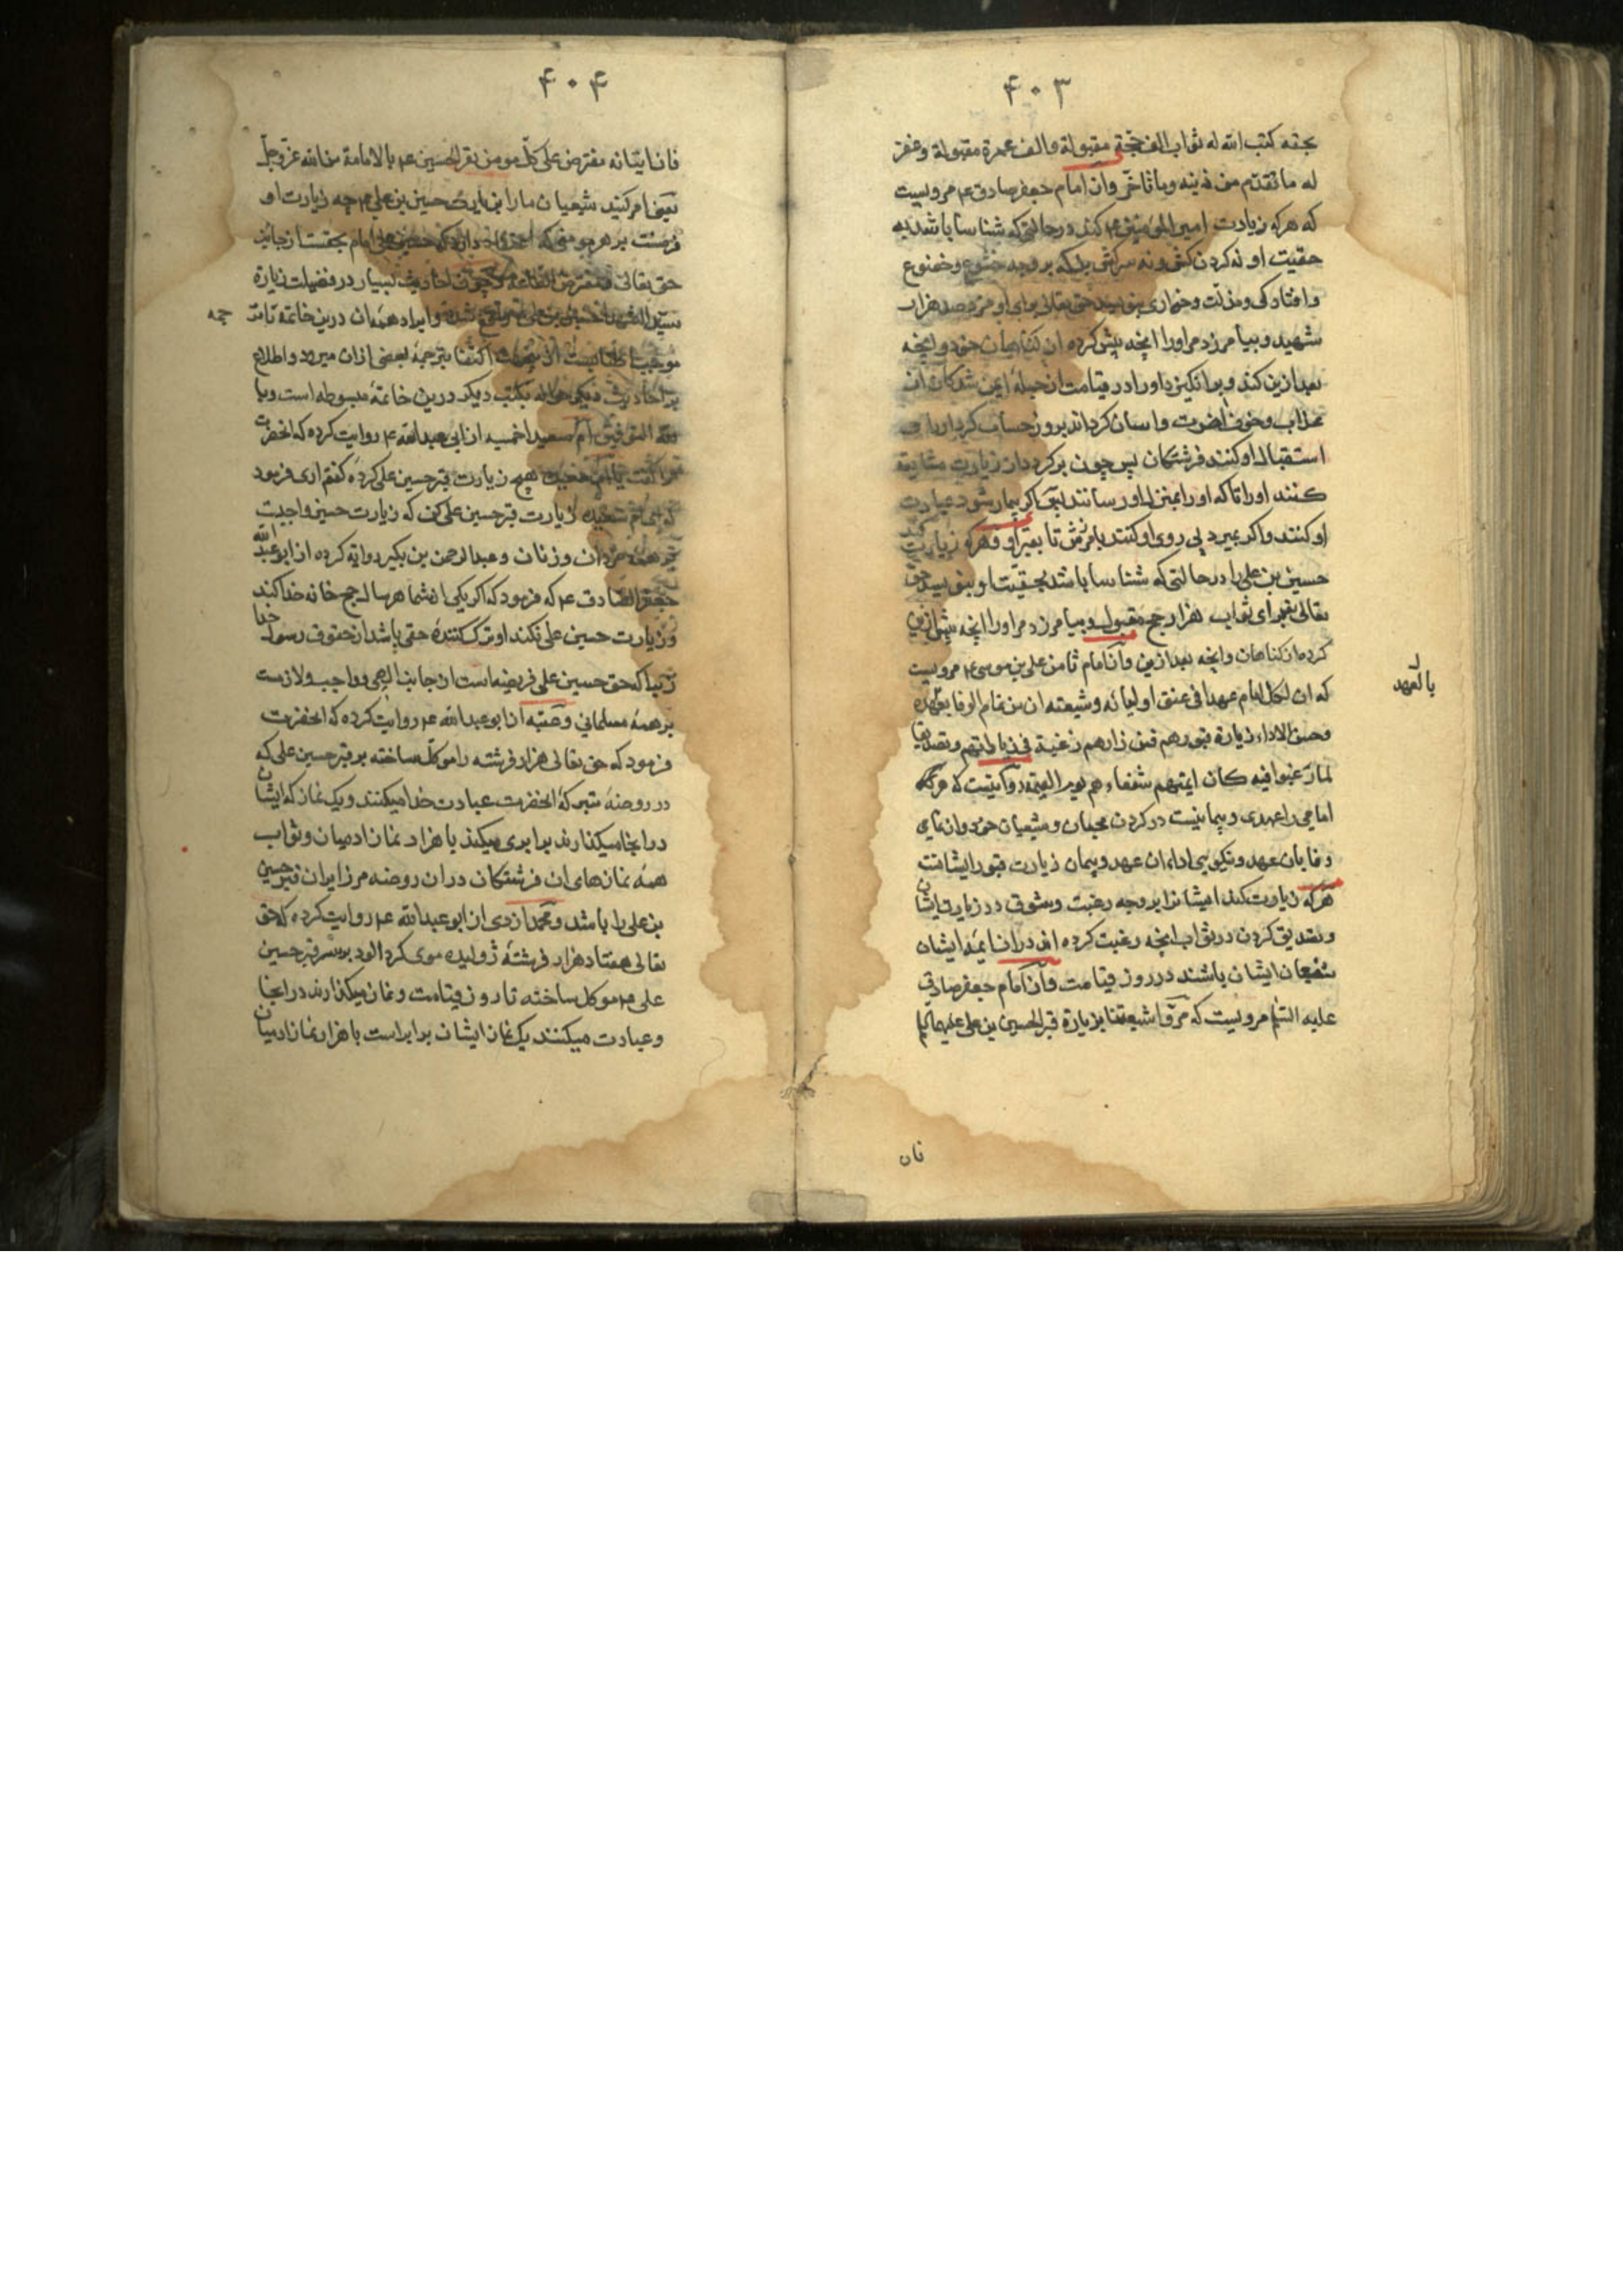 ۴۰۳
بحقه کتب الله له ثواب الف حجّة مقبولة والف عمرة مقبولة وغفر
له ما تقدّم من ذنبه وما تاخّر وان امام جعفر صادق ع م مرویست
که هرکه زیارت امیر المؤمنین ع م کند در حالتی که شناسا باشد به
حقیت او نه کردن کش و نه سرکش بل که بر وجه خشوع و خضوع
وافتادکی ومذلّت وخواری بنویسد حق تعالی برای او مزد صد هزار
شهید وبیامرزد مر اورا انچه پیش کرده از کناهان خود وانچه
بعد ازین کند وبرانکیزد اورا در قیامت از جملهٔ ایمن شدکان از
عذاب وخوف وآسان کرداند برو حساب
استقبال او کنند فرشتکان پس چون برکردد از زیارت مشایعة
کنند اورا تا که اورا بمنزل او رسانند پس اکر بیمار شود عیادت
او کنند واکر بمیرد پی روی او کنند بامرزش تا بقبر او وهرکه زیارت کند
حسین بن علی را در حالتی که شناسا باشد بحقیت او بنویسد حق
تعالی برای ثواب هزار حج مقبول وبیامرزد مر اورا انچه پیش ازین
کرده از کناهان وانچه بعد ازین وان امام ثامن علی بن موسی ع م مرویست
که ان لکل امام عهدا فی عنق اولیائه وشیعته ان من تمام الوفا بعهده
بالعهد
وحسن الاداء زیارة قبورهم فمن زارهم رغبة فی زیارتهم وتصدیقا
لما رغبوا فیه کان ایمتهم شفعاءهم یوم القیمة که هر
امامی را عهدی و پیمانیست در کردن محبان وشیعیان خود وان تمامی
وفا بان عهد ونیکویی اداء ان عهد وپیمان زیارت قبور ایشانت
هرکه زیارت کند ایشانرا بر وجه رغبت وشوق در زیارت ایشان
وتصدیق کردن در ثواب انچه رغبت کرده اند دران ایمه ایشان
شفیعان ایشان باشند در روز قیامت وان امام جعفر صادق
علیه السّلم مرویست که مروا شیعتنا بزیارة قبر الحسین بن علی علیهما
فان
۴۰۴
فان اتیانه مفترض علی کلّ مومن یقر للحسین ع م بالامامة من الله عزّ وجلّ
یعنی امر کنید شیعیان مارا بزیارت حسین بن علی ع م چه زیارت او
فرضست بر هر مومنی که امام بحقست از جانب
حق تعالی ومفترض الطاعه وچون احادیث بسیار در فضیلت زیارة
سید الشهدا حسین بن علی واقع شده وایراد همه ان درین خاتمه تامه
جمه
موجب اطنابست اکتفا بترجمهٔ بعضی ازان میرود واطلاع
بر احادیث دیکر حواله بکتب دیکر درین خاتمهٔ مبسوطه است وبا
لله التوفیق ام سعید احمسیه از ابی عبدالله ع م روایت کرده که انحضرت
مرا کفت یا ام سعید هیچ زیارت قبر حسین علی کردهٔ کفتم اری فرمود
که ای ام سعید زیارت قبر حسین علی کن که زیارت حسین واجبت
بر همه مردان وزنان وعبدالرحمن بن بکیر روایة کرده از ابو عبدالله
جعفر الصادق ع م که فرمود که اکر یکی از شما هر سال حج خانه خدا کند
وزیارت حسین علی نکند او ترک کنندهٔ حقی باشد از حقوق رسول خدا
زیرا که حق حسین علی فریضه است از جانب الهی وواجب ولازمست
بر همهٔ مسلمانی وعتبه از ابو عبدالله ع م روایت کرده که انحضرت
فرمود که حق تعالی هزار فرشته را موکّل ساخته بر قبر حسین علی که
در روضهٔ متبرکهٔ انحضرت عبادت خدا میکنند ویک نماز که ایشان
در انجا میکذارند برابری میکند با هزار نماز ادمیان وثواب
همهٔ نمازهای ان فرشتکان دران روضه مر زایران قبر حسین
بن علی را باشد ومحمد ازدی از ابو عبدالله ع م روایت کرده که حق
تعالی هفتاد هزار فرشتهٔ ژولیده موی کرد الود بر سر قبر حسین
علی ع م موکل ساخته تا روز قیامت ونماز میکذارند در انجا
وعبادت میکنند یک نماز ایشان برابر است با هزار نماز ادمیان